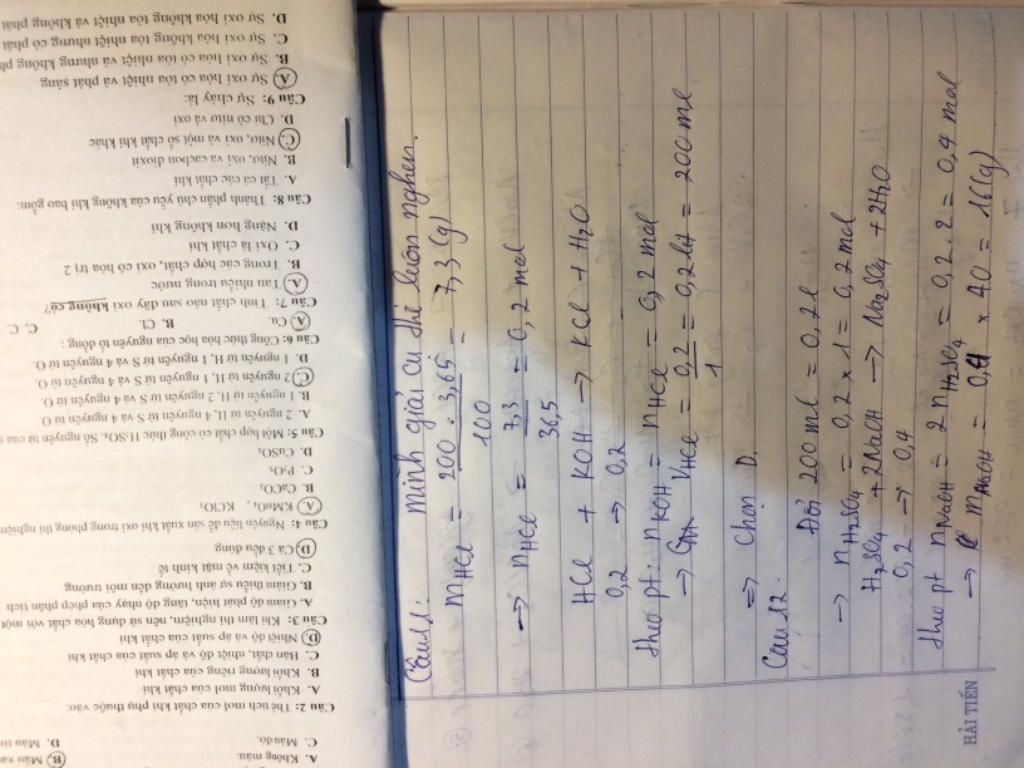 A. Không màu.
B. Màu xan
C. Màu đỏ.
D. Màu tím
Câu 2: Thể tích mol của chất khí phụ thuộc vào:
A. Khối lượng mol của chất khí
B. Khối lượng riêng của chất khí
C. Bản chất, nhiệt độ và áp suất của chất khí
D. Nhiệt độ và áp suất của chất khí
Câu 3: Khi làm thí nghiệm, nên sử dụng hóa chất với một
A. Giảm độ phát hiện, tăng độ nhạy của phép phân tích
B. Giảm thiểu sự ảnh hưởng đến môi trường
C. Tiết kiệm về mặt kinh tế
D. Cả 3 đều đúng
Câu 4: Nguyên liệu để sản xuất khí oxi trong phòng thí nghiệm
A. KMnO₄, KClO₃
B. CaCO₃
C. P₂O₅
D. CuSO₄
Câu 5: Một hợp chất có công thức H₂SO₄. Số nguyên tử của
A. 2 nguyên tử H, 4 nguyên tử S và 4 nguyên tử O.
B. 1 nguyên tử H, 2 nguyên tử S và 4 nguyên tử O.
C. 2 nguyên tử H, 1 nguyên tử S và 4 nguyên tử O.
D. 1 nguyên tử H, 1 nguyên tử S và 4 nguyên tử O.
Câu 6: Công thức hóa học của nguyên tố đồng :
A. Cu. B. CL C. C
Câu 7: Tính chất nào sau đây oxi không có?
A. Tan nhiều trong nước
B. Trong các hợp chất, oxi có hóa trị 2
C. Oxi là chất khí
D. Nặng hơn không khí
Câu 8: Thành phần chủ yếu của không khí bao gồm:
A. Tất cả các chất khí
B. Nitơ, oxi và cacbon dioxit
C. Nitơ, oxi và một số chất khí khác
D. Chỉ có nitơ và oxi
Câu 9: Sự cháy là:
A. Sự oxi hóa có tỏa nhiệt và phát sáng
B. Sự oxi hóa có tỏa nhiệt và nhưng không ph
C. Sự oxi hóa không tỏa nhiệt nhưng có phát
D. Sự oxi hóa không tỏa nhiệt và không phát
Câu 11. mình giải cụ thể luôn nghen.
mHCl = 200 . 3,65 / 100 = 7,3 (g)
→ nHCl = 7,3 / 36,5 = 0,2 mol
HCl + KOH → KCl + H₂O
0,2 → 0,2
theo pt: nKOH = nHCl = 0,2 mol
→ VHCl = 0,2 / 1 = 0,2 lít = 200 ml
⇒ Chọn D.
Câu 12. Đổi 200 ml = 0,2 l
→ nH₂SO₄ = 0,2 × 1 = 0,2 mol
H₂SO₄ + 2NaOH → Na₂SO₄ + 2H₂O
0,2 → 0,4
theo pt nNaOH = 2 nH₂SO₄ = 0,2 . 2 = 0,4 mol
→ mNaOH = 0,4 × 40 = 16 (g)
HẢI TIẾN